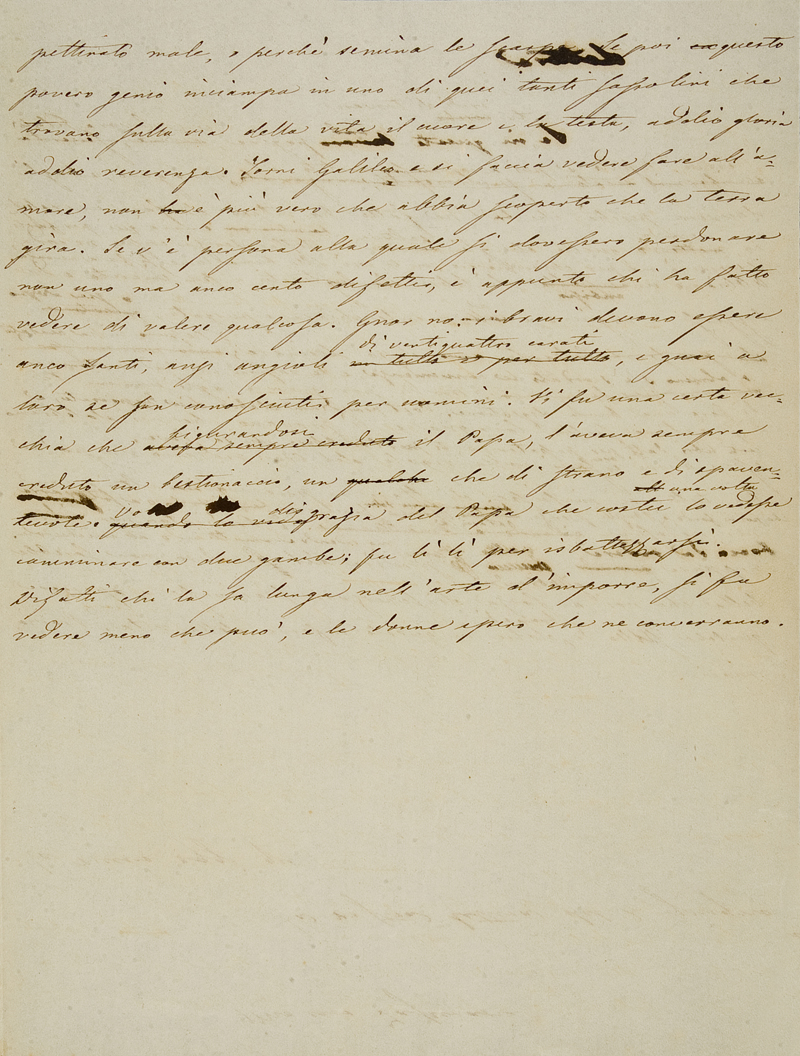 pettinato male, o perchè semina le scarpe. Se poi questo
povero genio inciampa in uno di quei tanti sassolini che
trovano sulla via della vita il cuore e la testa, addio gloria
addio reverenza. Torni Galileo e si faccia vedere fare all'a-
more, non ha è più vero che abbia scoperto che la terra
gira. Se v'è persona alla quale si dovessero perdonare
non uno ma anco cento difetti, è appunto chi ha fatto
vedere di valere qualcosa. Gnor no: i bravi devono essere
di ventiquattro carati
anco santi, anzi angioli in tutto e per tutto, e guai a
loro se son conosciuti per uomini. Vi fu una certa vec-
figurandosi
chia che aveva sempre creduto il Papa, l'aveva sempre
creduto un bestionaccio, un qualche che di strano e di spaven-
una volta
tevole. quando lo vide disgrazia del Papa che costei lo vedesse
camminare con due gambe; fu lì lì per isbattezzarsi.
Difatti chi la sa lunga nell'arte d'imporre, si fa
vedere meno che può, e le donne spero che ne converranno.